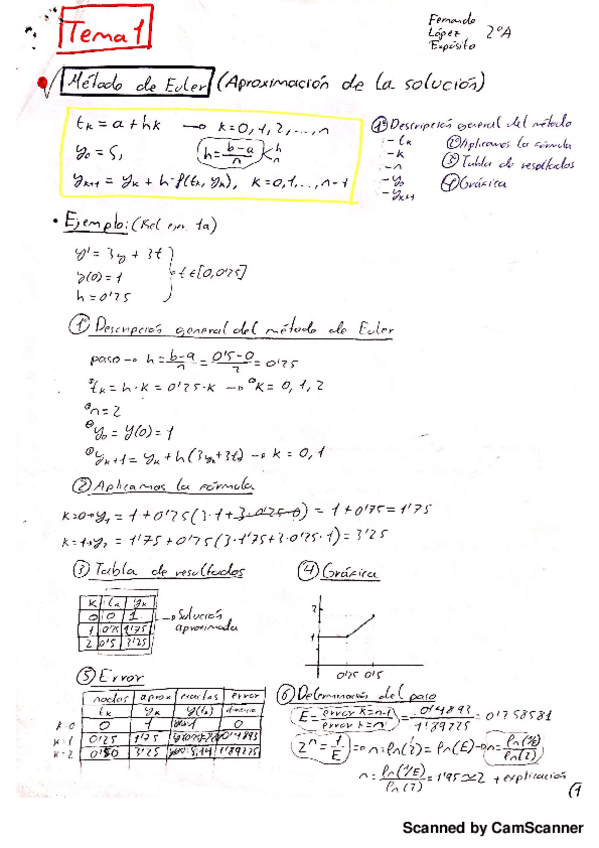 Tema 1
Fernando
López
Expósito
2ºA
Método de Euler (Aproximación de la solución)
tk = a + hk → k=0,1,2,...,n
y0 = S,
h = b-a/n
yk+1 = yk + h·f(tk, yk), k=0,1,...,n-1
1º Descripción general del método
- tk
- k
- n
- y0
- yk+1
2º Aplicamos la fórmula
3º Tabla de resultados
4º Gráfica
• Ejemplo: (Rel ejer. 1a)
y' = 3y + 3t
y(0) = 1
h = 0'25
t ∈ [0,0'25]
1º Descripción general del método de Euler
paso → h = b-a/n = 0'5-0/2 = 0'25
tk = h·k = 0'25·k → k = 0, 1, 2
n = 2
y0 = y(0) = 1
yk+1 = yk + h(3yk+3t) → k = 0, 1
2 Aplicamos la fórmula
k=0 → y1 = 1 + 0'25(3·1+3·0'25·0) = 1 + 0'75 = 1'75
k=1 → y2 = 1'75 + 0'25(3·1'75+3·0'25·1) = 3'25
3 Tabla de resultados
k tk yk
0 0 1
1 0'25 1'75
2 0'5 3'25
→ Solución
aproximada
4 Gráfica
2
1
0'25 0'5
5 Error
nodos aprox exactas error
tk yk y(tk)
k=0 0 1 0
k=1 0'25 1'75 0'4893
k=2 0'50 3'25 5,14 1'89225
6 Determinación del paso
E = error k=n-1 / error k=n = 0'4893 / 1'89225 = 0'258581
2^n = 1/E => n·ln(2) = ln(E) → n = ln(1/E) / ln(2)
n = ln(1/E) / ln(2) = 1'95 ≃ 2 + explicación
(1
Scanned by CamScanner